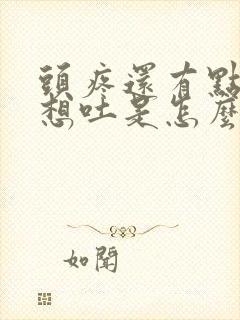 頭疼還有點
想吐是怎麼
如聞